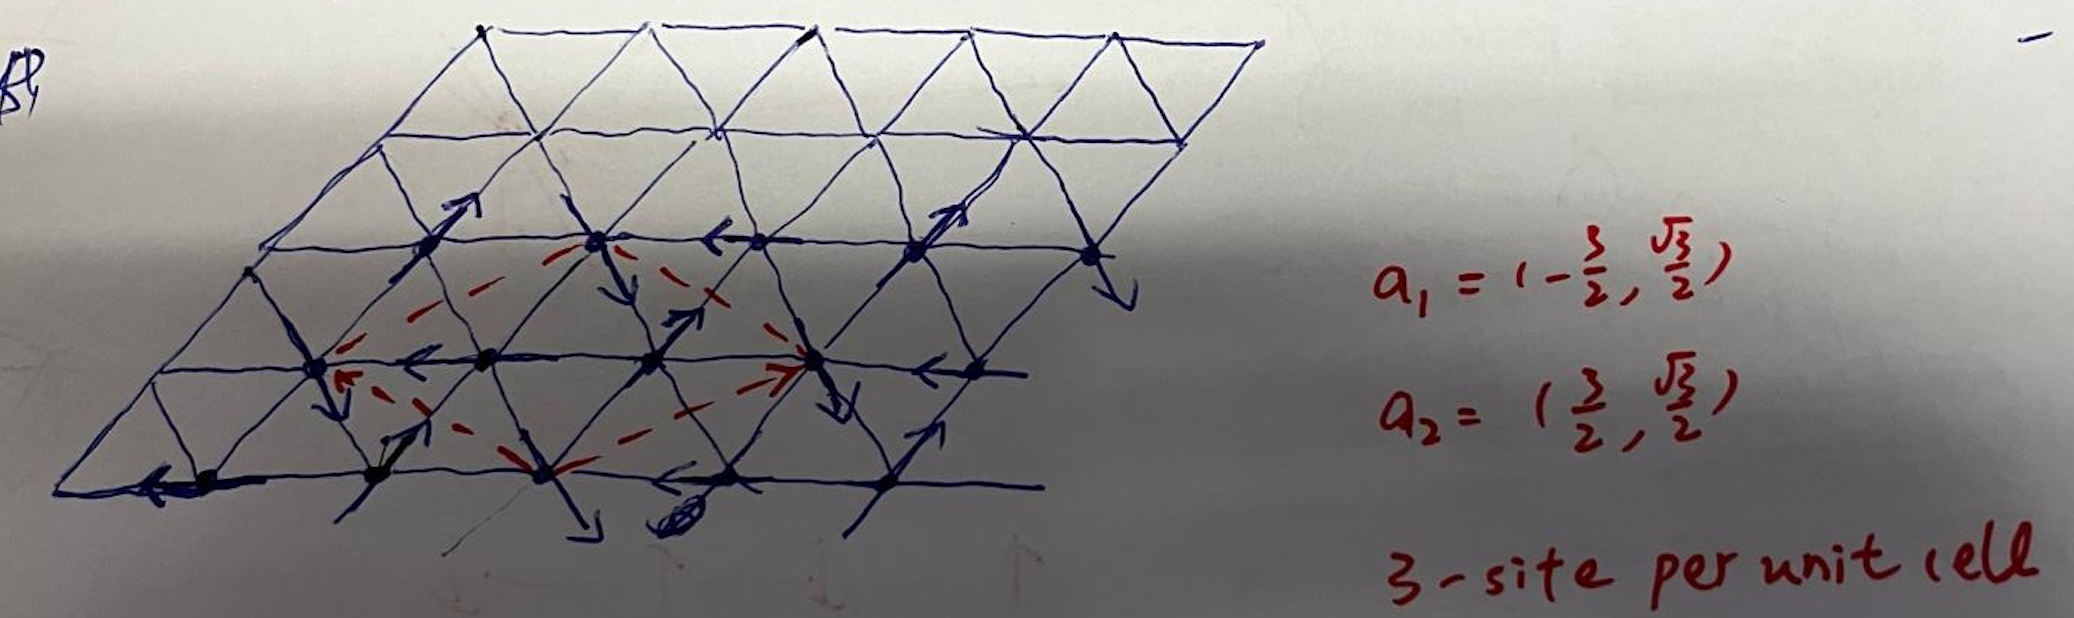 a₁ = (-3/2, √3/2)
a₂ = (3/2, √3/2)
3-site per unit cell